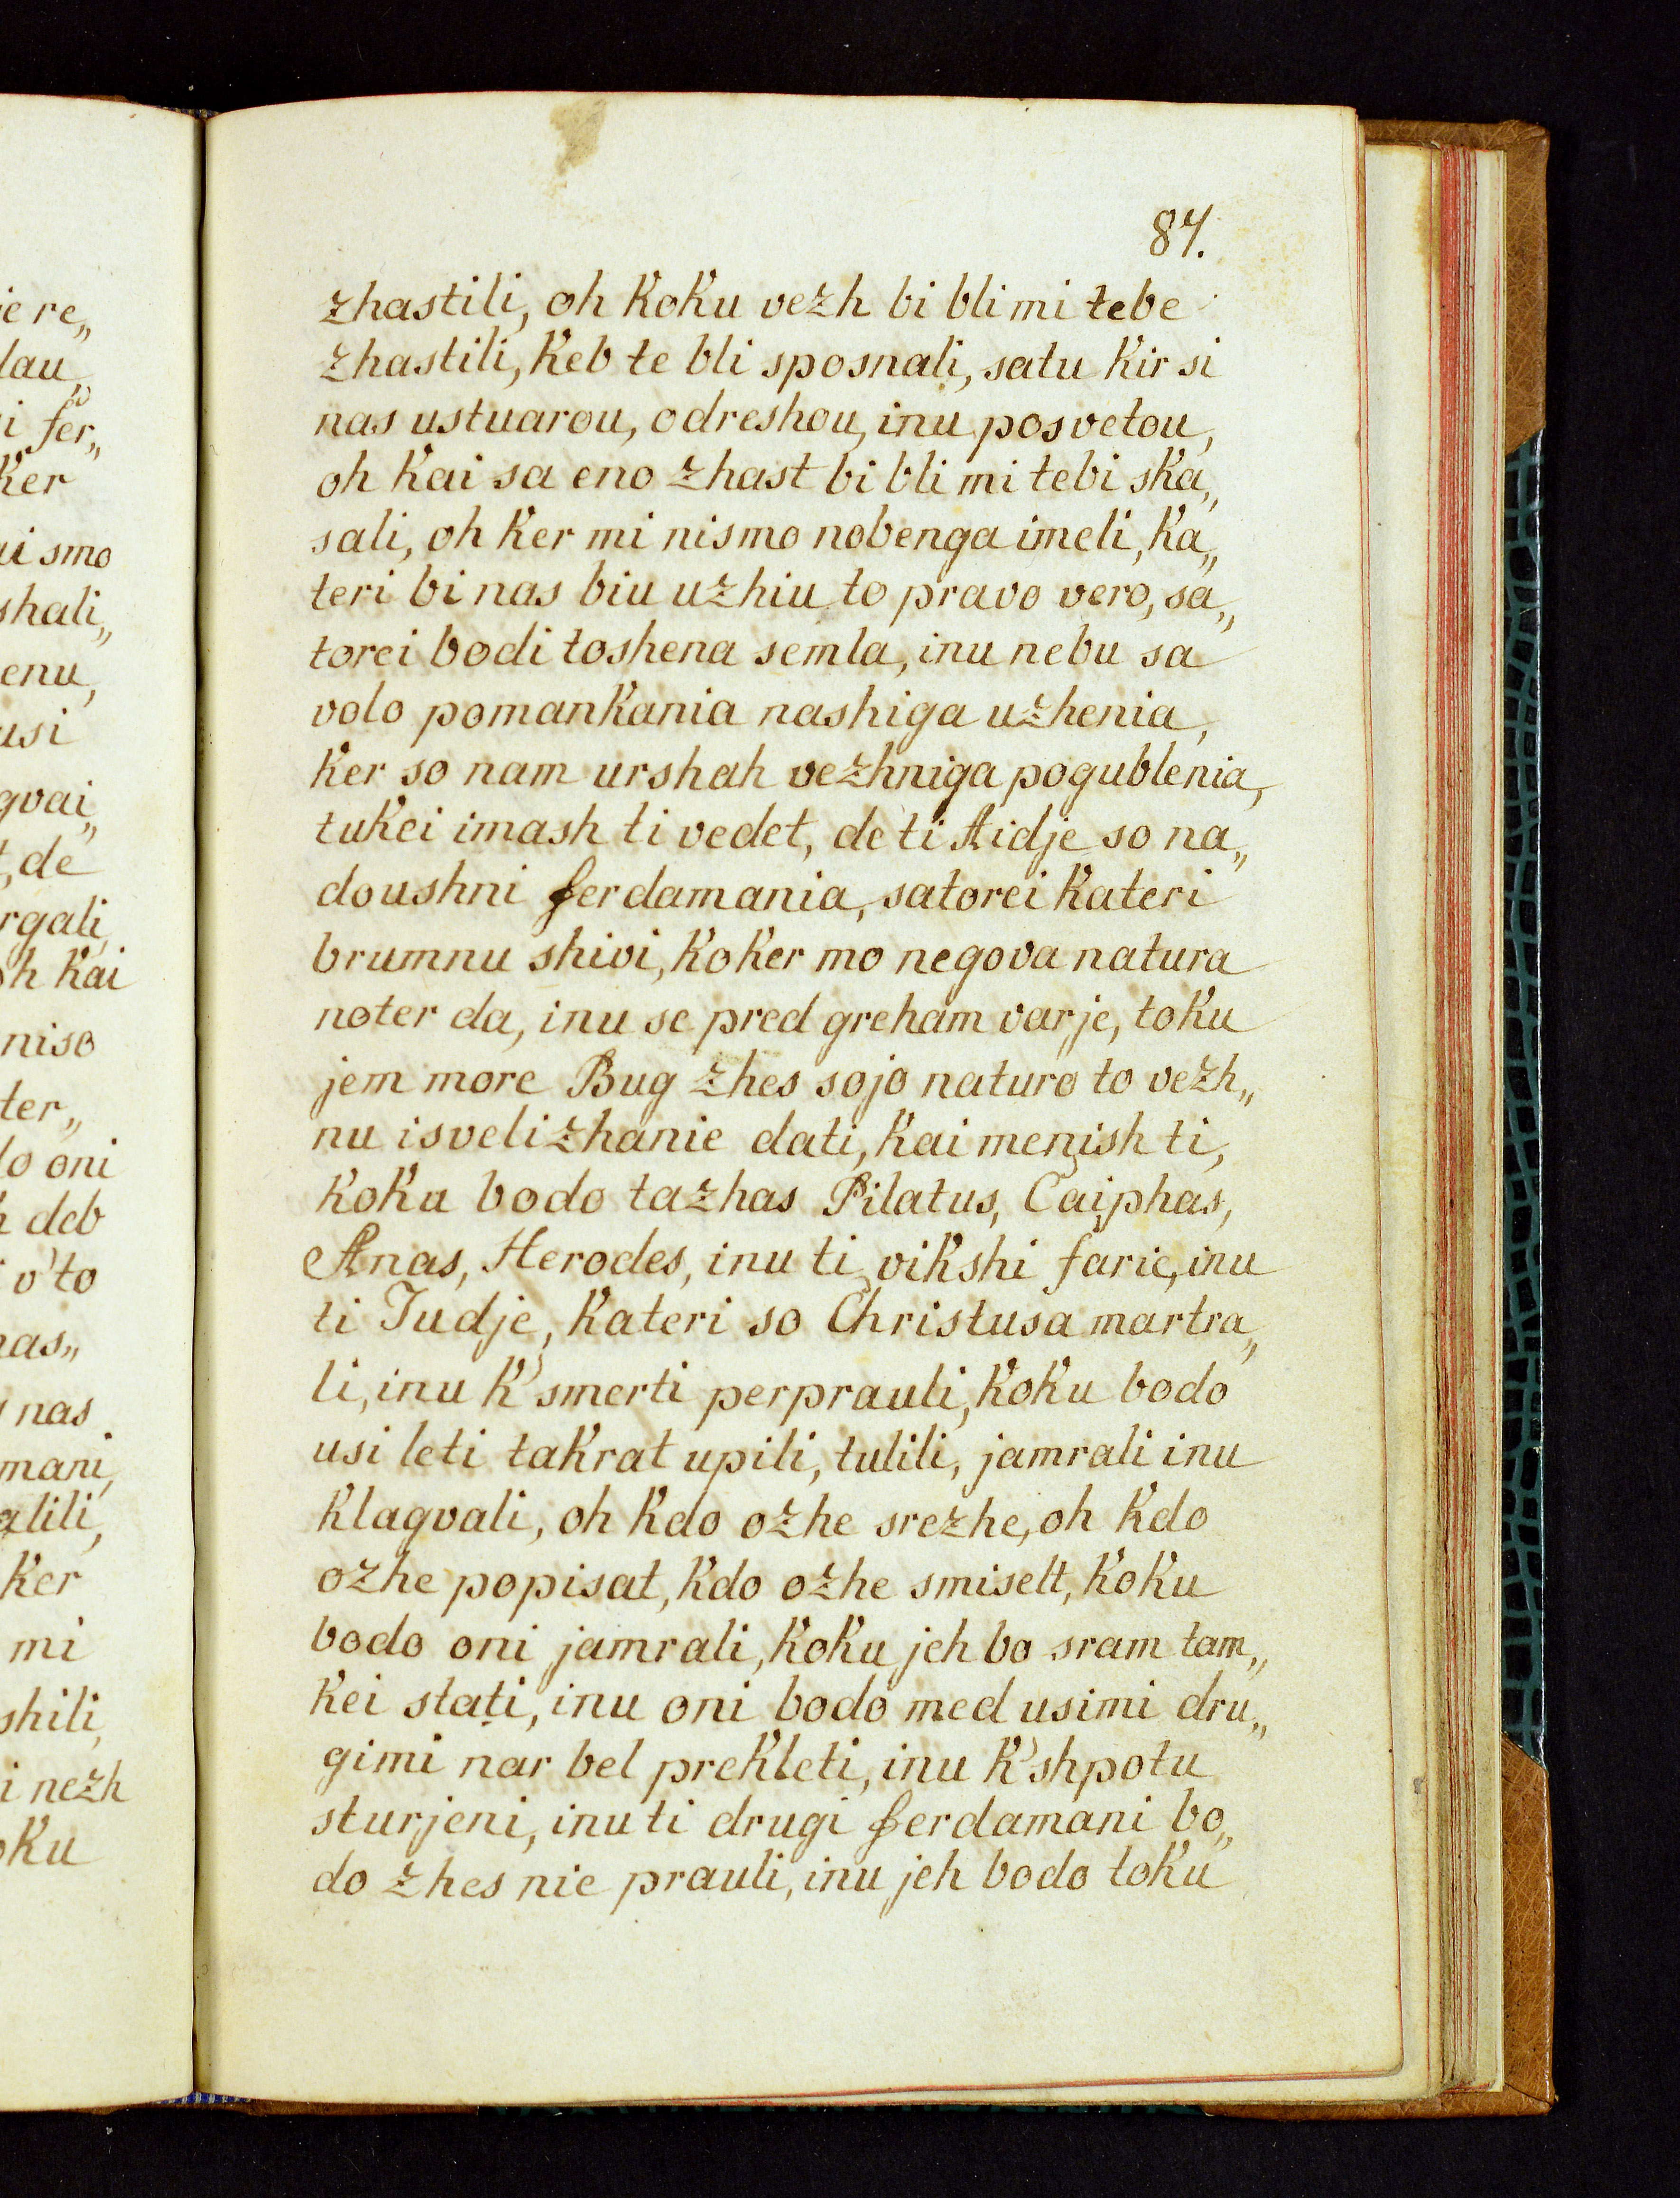 84.
zhastili, oh koku vezh bi bli mi tebe
zhastili, keb te bli sposnali, satu kir si
nas ustuarou, odreshou, inu posvetou,
oh kai sa eno zhast bi bli mi tebi ska„
sali, oh ker mi nismo nobenga imeli, ka„
teri bi nas biu uzhiu to pravo vero, sa„
torei bodi toshena semla, inu nebu sa
volo pomankania nashiga uzhenia,
ker so nam urshah vezhniga pogublenia,
tukei imash ti vedet, de ti Aidje so na„
doushni ferdamania, satorei kateri
brumnu shivi, koker mo negova natura
noter da, inu se pred greham varje, toku
jem more Bug zhes sojo naturo to vezh„
nu isvelizhanie dati, kai menish ti,
koku bodo tazhas Pilatus, Caiphas,
Anas, Herodes, inu ti vikshi farie, inu
ti Judje, kateri so Christusa martra„
li, inu k'smerti perprauli, koku bodo
usi leti takrat upili, tulili, jamrali inu
klagvali, oh kdo ozhe srezhe, oh kdo
ozhe popisat, kdo ozhe smiselt, koku
bodo oni jamrali, koku jeh bo sram tam„
kei stati, inu oni bodo med usimi dru„
gimi nar bel prekleti, inu k'shpotu
sturjeni, inu ti drugi ferdamani bo„
do zhes nie prauli, inu jeh bodo toku